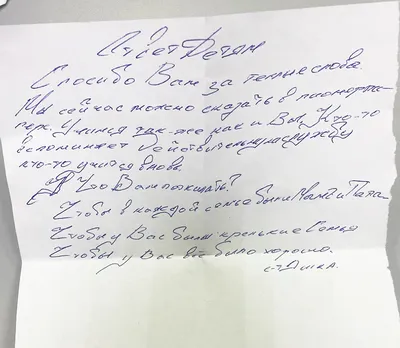 Ответ Детям
Спосибо Вам за теплые слова.
Мы сейчас можно сказать в
Учимся так-же как и Вы. Кто-то
вспоминает действительную службу
кто-то учится вновь.
Что Вам пожелать?
Чтобы в каждой семье были Мама и Папа
Чтобы у Вас были крепкие Семьи
Чтобы у Вас всё было хорошо.